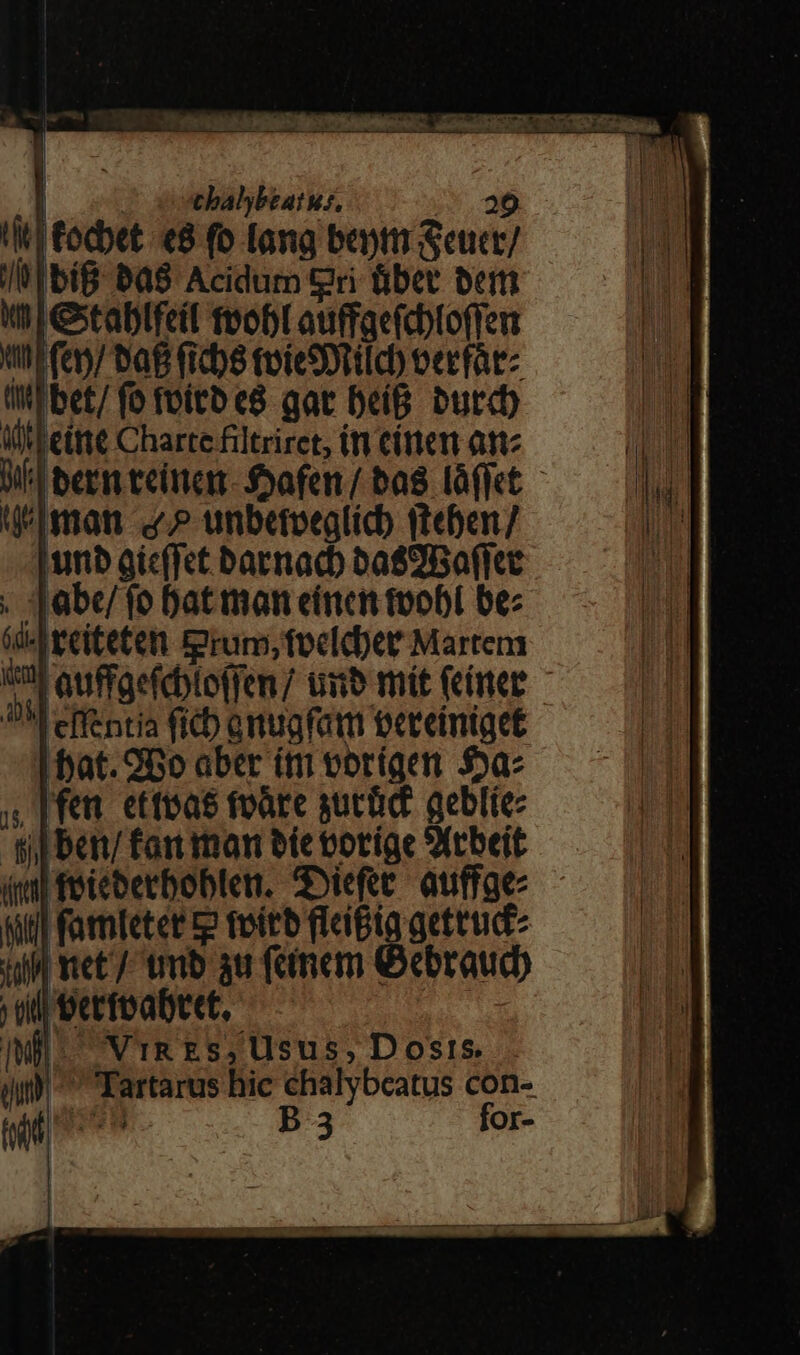 chalybeatus. 29
kochet es ſo lang beym Feuer/
biß das Acidum 🜿ri uͤber dem
Stahlfeil wohl auffgeſchloſſen
ſey/ daß ſichs wie Milch verfaͤr⸗
bet/ ſo wird es gar heiß durch
eine Charte filtriret, in einen an⸗
dern reinen Hafen/ das laͤſſet
man unbeweglich ſtehen/
und gieſſet darnach das Waſſer
abe/ ſo hat man einen wohl be⸗
reiteten 🜿rum, welcher Martem
auffgeſchloſſen/ und mit ſeiner
eſſentia ſich gnugſam vereiniget
hat. Wo aber im vorigen Ha⸗
fen ettwas waͤre zuruͤck geblie⸗
ben/ kan man die vorige Arbeit
wiederhohlen. Dieſer auffge⸗
ſamleter 🜿 wird fleißig getruck⸗
net/ und zu ſeinem Gebrauch
verwahret.
VIRES, Usus, Dosis.
Tartarus hic chalybeatus con-
B 3 for-